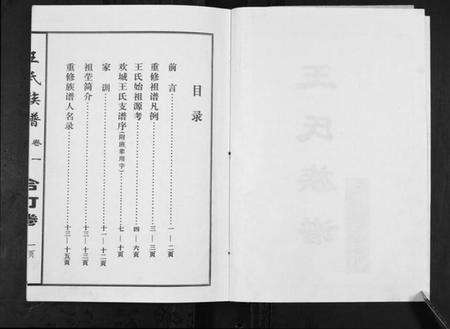 目录
前言……一—二頁
重修祖谱凡例……三—三頁
王氏始祖源考……四—六頁
欢城王氏支谱序(附班辈用字)……七—十頁
家训……十一—十二頁
祖茔简介……十三—十三頁
重修族谱人名录……十三—十五頁
王氏族譜 卷一 合订卷 一页
王氏族谱